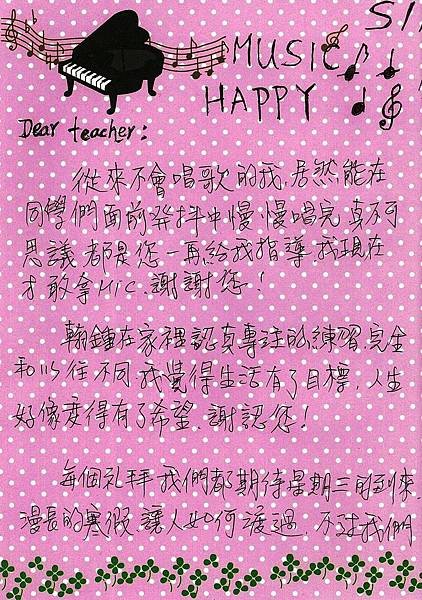 SI
MUSIC
HAPPY
Dear teacher:
從來不會唱歌的我,居然能在
同學們面前發抖中慢慢唱完,真不可
思議,都是您一再給我指導,我現在
才敢拿Mic.謝謝您!
翰鍾在家裡認真專注的練習,完全
和以往不同,我覺得生活有了目標,人生
好像變得有了希望.謝認您!
每個礼拜我們都期待星期三的到來,
漫長的寒假.讓人如何渡過.不过我們